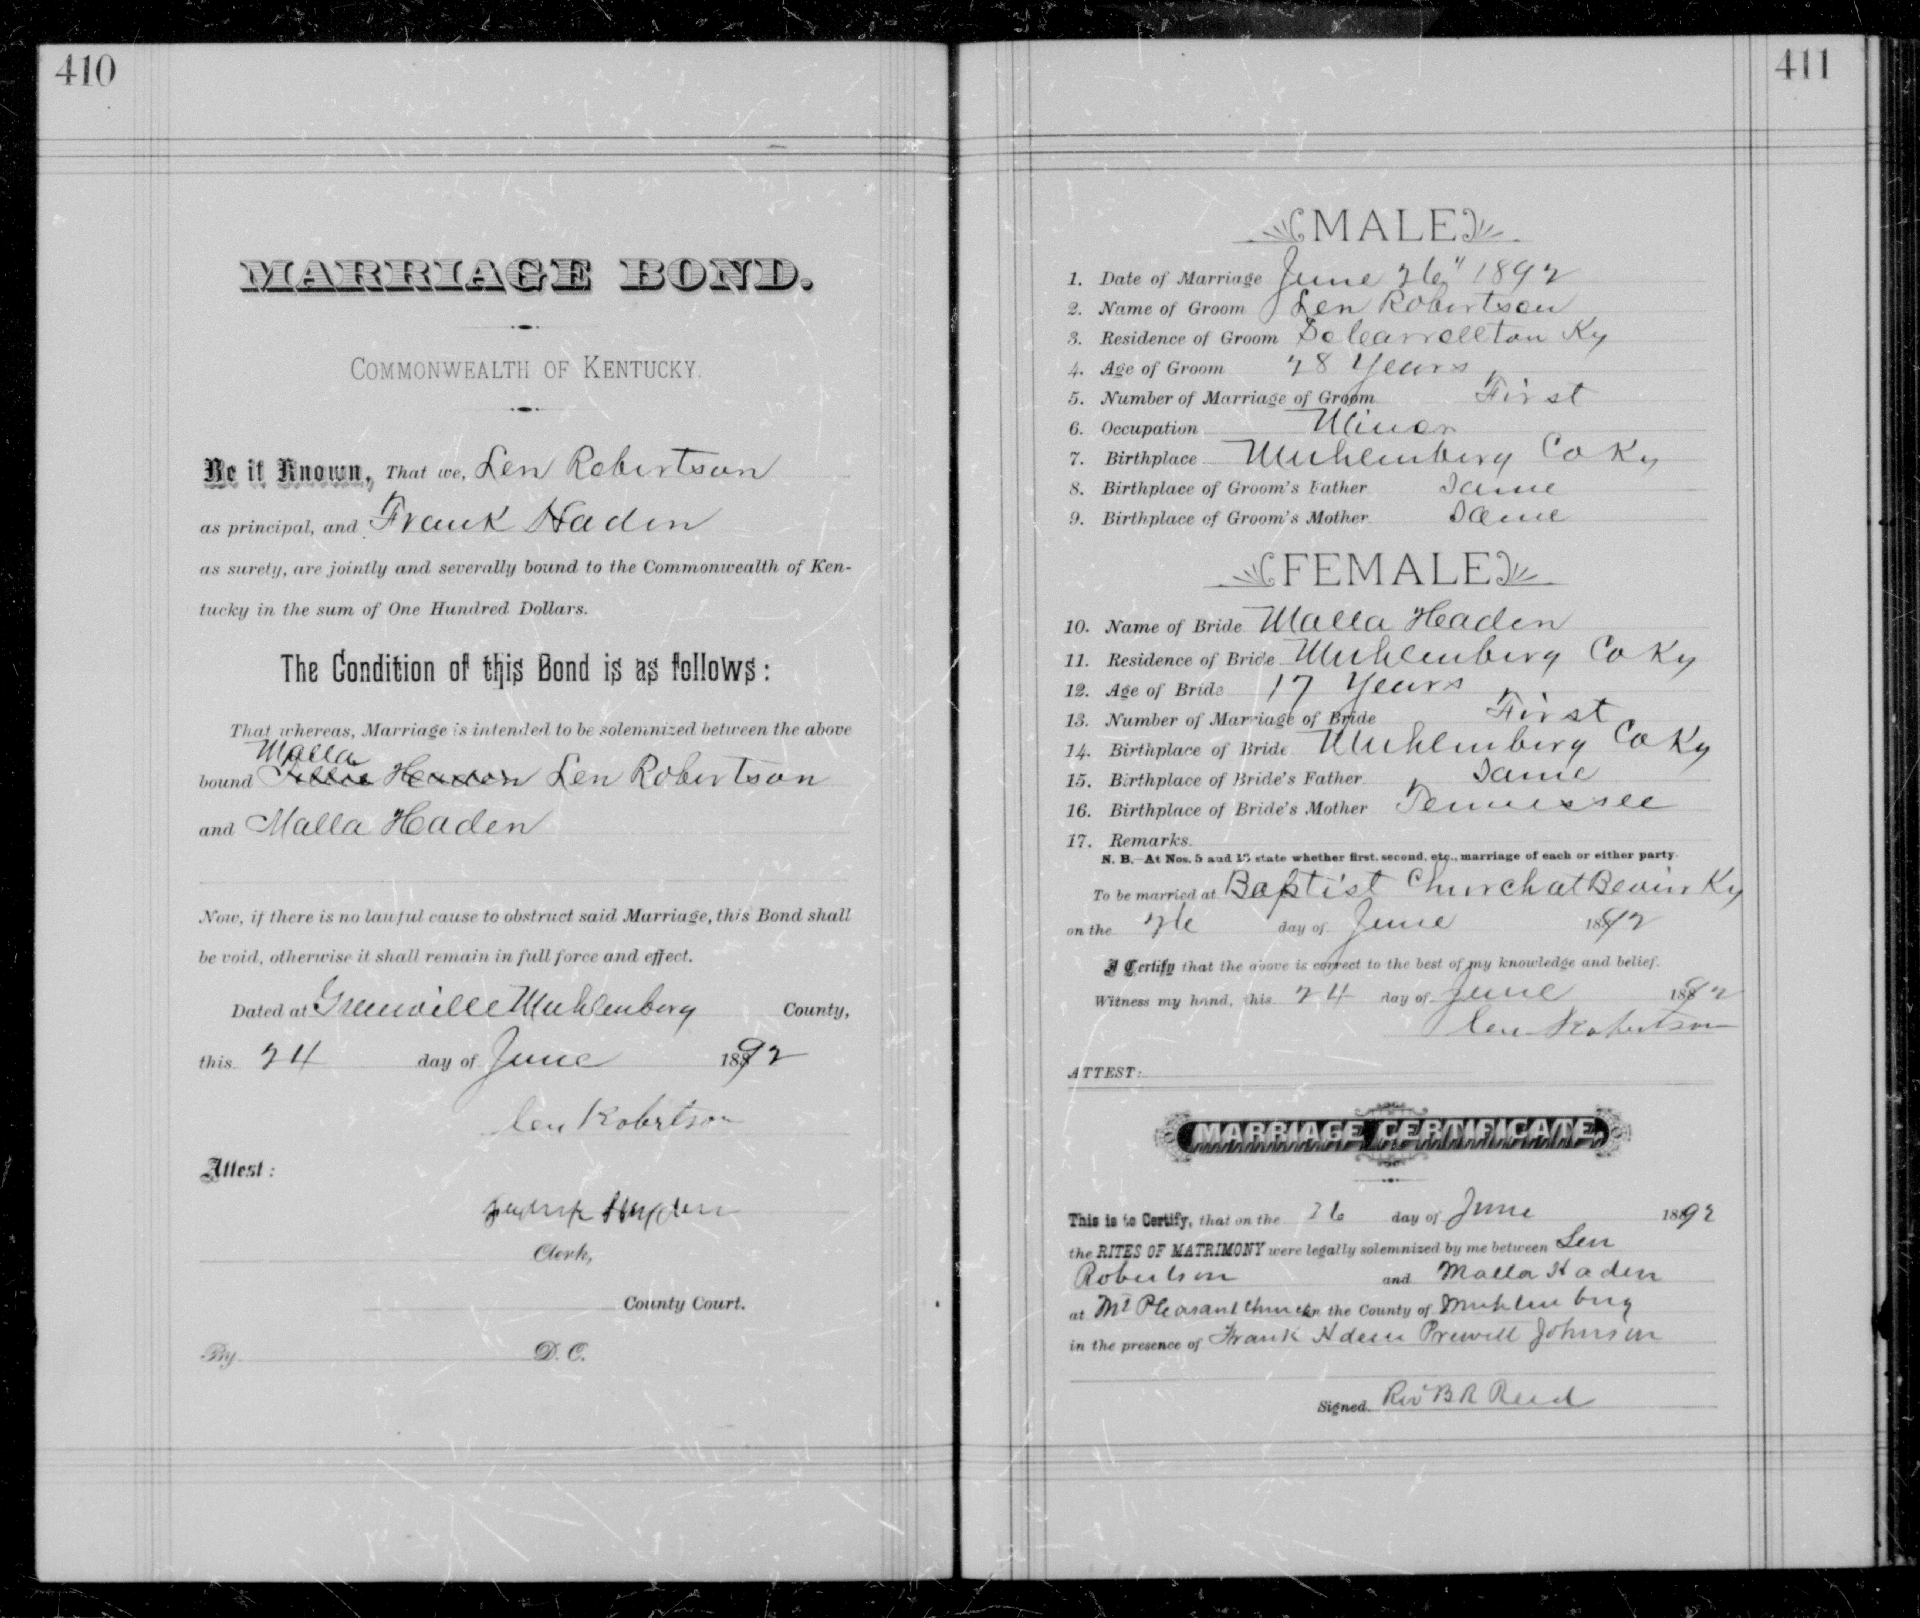 410
MARRIAGE BOND.
COMMONWEALTH OF KENTUCKY.
Be it Known, That we, Len Robertson
as principal, and Frank Haden
as surety, are jointly and severally bound to the Commonwealth of Ken-
tucky in the sum of One Hundred Dollars.
The Condition of this Bond is as follows:
That whereas, Marriage is intended to be solemnized between the above
Malla
bound Len Robertson
and Malla Haden
Now, if there is no lawful cause to obstruct said Marriage, this Bond shall
be void, otherwise it shall remain in full force and effect.
Dated at Greenville Muhlenberg County,
this 24 day of June 1892
Len Robertson
Attest:
Clerk,
County Court.
By D. C.
411
MALE
1. Date of Marriage June 26" 1892
2. Name of Groom Len Robertson
3. Residence of Groom So Carrollton Ky
4. Age of Groom 28 Years
5. Number of Marriage of Groom First
6. Occupation Minor
7. Birthplace Muhlenberg Co Ky
8. Birthplace of Groom's Father Same
9. Birthplace of Groom's Mother Same
FEMALE
10. Name of Bride Malla Haden
11. Residence of Bride Muhlenberg Co Ky
12. Age of Bride 17 Years
13. Number of Marriage of Bride First
14. Birthplace of Bride Muhlenberg Co Ky
15. Birthplace of Bride's Father Same
16. Birthplace of Bride's Mother Tennessee
17. Remarks
N. B.—At Nos. 5 and 13 state whether first, second, etc., marriage of each or either party.
To be married at Baptist Church at Bevier Ky
on the 26 day of June 1892
I Certify that the above is correct to the best of my knowledge and belief.
Witness my hand, this 24 day of June 1892
Len Robertson
ATTEST:
MARRIAGE CERTIFICATE.
This is to Certify, that on the 26 day of June 1892
the RITES OF MATRIMONY were legally solemnized by me between Len
Robertson and Malla Haden
at Mt Pleasant Church in the County of Muhlenberg
in the presence of Frank Haden Prewitt Johnson
Signed Rev B R Reed